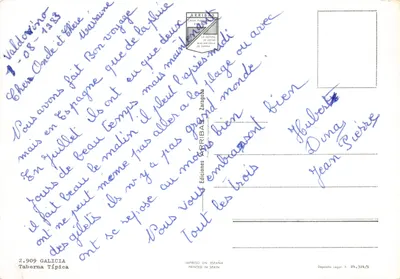 Valdoviño
1-08-1983
Chers Oncle et Chère Marraine
Vous avons fait Bon voyage
mais en Espagne que de la pluie
En Juillet ils ont eu que deux
jours de beau temps mais maintenant
il fait beau le matin il pleut l'après midi
on ne peut même pas aller a la plage ou avec
des gilets ils n'y a pas grand monde.
ont se repose au moins bien
Vous vous embrassont bien
Tout les trois
Hubert
Dina
Jean Pierre
ARRIBAS
Ediciones ARRIBAS Zaragoza
2.909 GALICIA
Taberna Típica
IMPRESO EN ESPAÑA